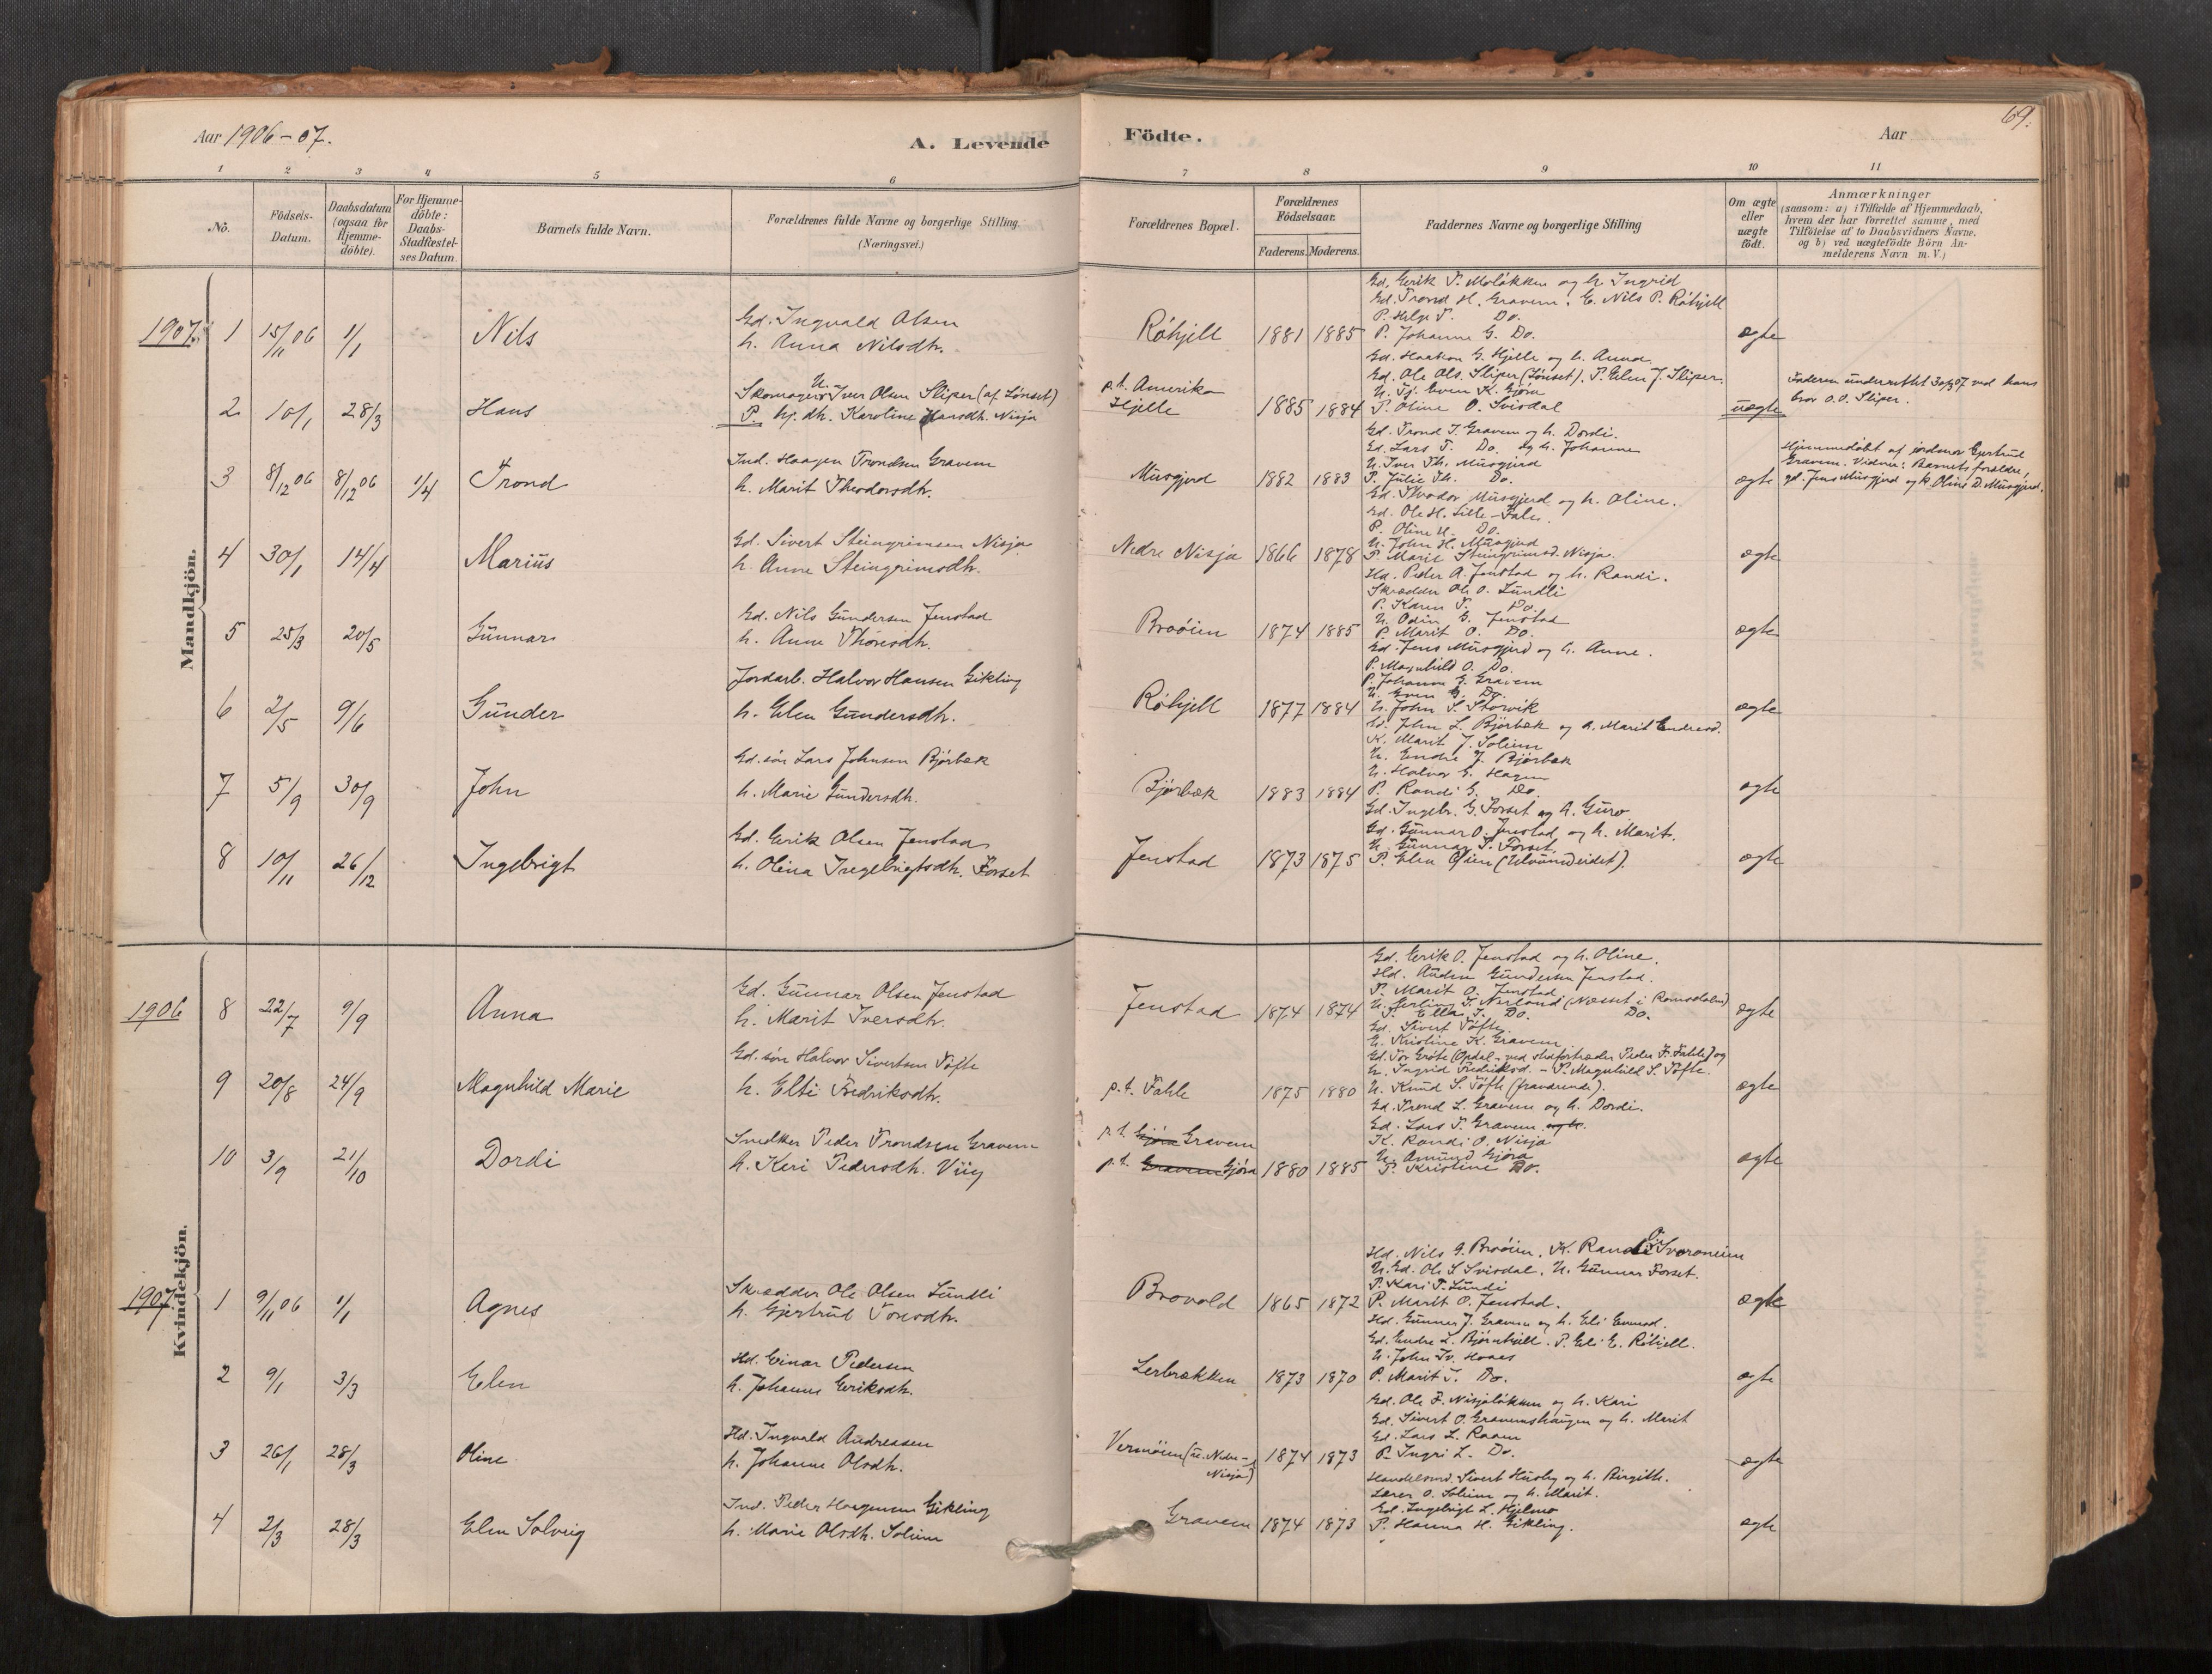 Aar 1906-07.
A. Levende
Födte.
Aar
69.
1 2 3 4 5 6 7 8 9 10 11
No.
Födsels-Datum.
Daabsdatum (ogsaa for Hjemme-döbte).
For Hjemme-döbte: Daabs-Stadfæstel-ses Datum.
Barnets fulde Navn.
Forældrenes fulde Navne og borgerlige Stilling. (Næringsvei.)
Forældrenes Bopæl.
Forældrenes Födselsaar.
Faderens. Moderens.
Faddernes Navne og borgerlige Stilling
Om ægte eller uægte födt.
Anmærkninger
(saasom: a) i Tilfælde af Hjemmedaab,
hvem der har forrettet samme, med
Tilföielse af to Daabsvidners Navne.
og b) ved uægtefödte Börn An-
melderens Navn m. V.)
Mandkjön.
1907. 1 15/11 06 1/1 Nils
Gd. Ingvald Olsen
h. Anna Nilsdtr.
Röhjell 1881 1885
Gd. Erik T. Moløkken og h. Ingrid
Gd. Trond H. Gravem. E. Nils P. Röhjell
P. Helge T. Do.
P. Johanne G. Do.
ægte
2 10/1 28/3 Hans
Skomager U. Iver Olsen Sliper (af Lønset)
P. hj. dtr. Karoline Hansdtr. Nisja
p.t. Amerika
Hjelle 1885 1884
Gd. Haakon G. Hjelle og h. Anna
Gd. Ole Ols. Sliper (Lønset). P. Elen J. Sliper.
U. Tj. Even K. Gjøra
P. Oline O. Svisdal
uægte
Faderen underrettet 30/3 07 ved hans
bror O.O. Sliper.
3 8/12 06 8/12 06 1/4 Trond
Ind. Haagen Trondsen Gravem
h. Marit Theodorsdtr.
Musgjerd 1882 1883
Gd. Trond T. Gravem og h. Dordi.
Gd. Lars T. Do. og h. Johanne
U. Iver Th. Musgjerd
P. Julie Th. Do.
ægte
Hjemmedøbt af jordmor Gjertrud
Gravem. Vidner: Barnets forældre,
gd. Jens Musgjerd og h. Oline D. Musgjerd.
4 30/1 14/4 Marius
Gd. Sivert Steingrimsen Nisja
h. Anne Steingrimsdtr.
Nedre Nisja 1866 1878
Gd. Theodor Musgjerd og h. Oline.
Gd. Ole H. Lille-Fale.
P. Oline U. Do.
U. John H. Musgjerd
P. Marit Steingrimsd. Nisja.
ægte
5 25/3 20/5 Gunnar
Gd. Nils Gundersen Jenstad
h. Anne Thoresdtr.
Broöien 1874 1885
Hd. Peder A. Jenstad og h. Randi.
Skrædder Ole O. Lundli
P. Karen T. Do.
U. Odin G. Jenstad
P. Marit O. Do.
ægte
6 2/5 9/6 Gunder
Jordarb. Halvor Hansen Gikling
h. Elen Gundersdtr.
Röhjell 1877 1884
Gd. Jens Musgjerd og h. Anne.
P. Magnhild O. Do.
P. Johanne G. Gravem
U. Even G. Do.
U. John S. Storvik
ægte
7 5/9 30/9 John
Gd. søn Lars Johnsen Bjørbæk
h. Marie Gundersdtr.
Bjørbæk 1883 1884
Gd. John L. Bjørbæk og h. Marit Endresd.
K. Marit J. Solium
U. Endre J. Bjørbæk
U. Halvor G. Hagen
P. Randi G. Do.
ægte
8 10/11 26/12 Ingebrigt
Gd. Erik Olsen Jenstad
h. Olina Ingebrigtsdtr. Forset
Jenstad 1873 1875
Gd. Ingebr. G. Forset og h. Guro
Gd. Gunnar O. Jenstad og h. Marit.
U. Gunnar I. Forset.
P. Elen Øien (Ulvundeidet).
ægte
Kvindekjön.
1906 8 22/7 9/9 Anna
Gd. Gunnar Olsen Jenstad
h. Marit Iversdtr.
Jenstad 1874 1874
Gd. Erik O. Jenstad og h. Oline.
Hd. Auden Gundersen Jenstad.
P. Marit O. Jenstad
U. Erling I. Nerland (Nesset i Romsdalen)
P. Ella I. Do. Do.
ægte
9 20/8 24/9 Magnhild Marie
Gd. søn Halvor Sivertsen Tøfte
h. Elti Fredriksdtr.
p.t. Fahle 1875 1880
Gd. Sivert Tøfte.
U. Kristine K. Gravem
Gd. Tor Grøte (Opdal - ved stedfortræder Peder F. Fahle) og
h. Ingrid Fredriksd. - P. Magnhild S. Tøfte.
U. Knud S. Tøfte (fraværende).
ægte
10 3/9 21/10 Dordi
Snedker Peder Trondsen Gravem
h. Keri Pedersdtr. Viig
p.t. Gjøra Gravem
p.t. Gravem Gjøra 1880 1885
Gd. Trond L. Gravem og h. Dordi.
Gd. Lars T. Gravem og h.
K. Randi O. Nisja
U. Amund Gjøra
P. Kristine Do.
ægte
1907. 1 9/11 06 1/1 Agnes
Skrædder Ole Olsen Lundli
h. Gjertrud Toresdtr.
Brovold 1865 1872
Hd. Nils G. Broöien. K. Randi O. Svoronien
U. Gd. Ole S. Svisdal. U. Gunnar Forset.
P. Kari T. Lundi
P. Marit O. Jenstad.
ægte
2 9/1 3/3 Elen
Hd. Einar Pedersen
h. Johanne Eriksdtr.
Lerbrækken 1873 1870
Hd. Gunnar J. Gravem og h. Eli Evensd.
Gd. Endre L. Bjørnhjell. P. Eli E. Röhjell.
U. John Tr. Hoaas
P. Marit T. Do.
ægte
3 26/1 28/3 Oline
Hd. Ingvald Andreasen
h. Johanne Olsdtr.
Vermøien (u. Nedre-Nisja) 1874 1873
Gd. Ole F. Nisjaløkken og h. Kari
Gd. Sivert O. Gravemshaugen og h. Marit
Gd. Lars L. Raaen
P. Ingri L. Do.
ægte
4 2/3 28/3 Elen Solveig
Ind. Peder Haagensen Gikling
h. Marie Olsdtr. Solium
Gravem 1874 1873
Handelsmd. Sivert Husby og h. Birgith.
Lærer O. Solium og h. Marit.
Gd. Ingebrigt L. Hjelmo
P. Hanna H. Gikling.
ægte